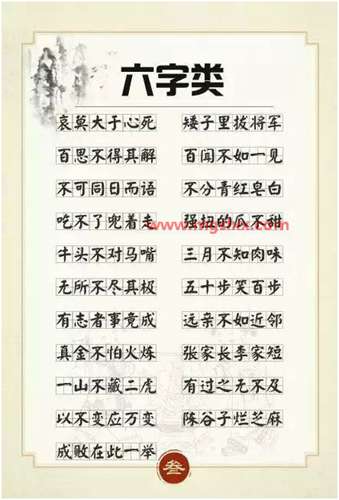 六字类
哀莫大于心死 矮子里拔将军
百思不得其解 百闻不如一见
不可同日而语 不分青红皂白
吃不了兜着走 强扭的瓜不甜
牛头不对马嘴 三月不知肉味
无所不尽其极 五十步笑百步
有志者事竟成 远亲不如近邻
真金不怕火炼 张家长李家短
一山不藏二虎 有过之无不及
以不变应万变 陈谷子烂芝麻
成败在此一举
叁